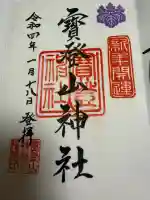 新年開運
寳登山神社
令和四年一月十八日登拝